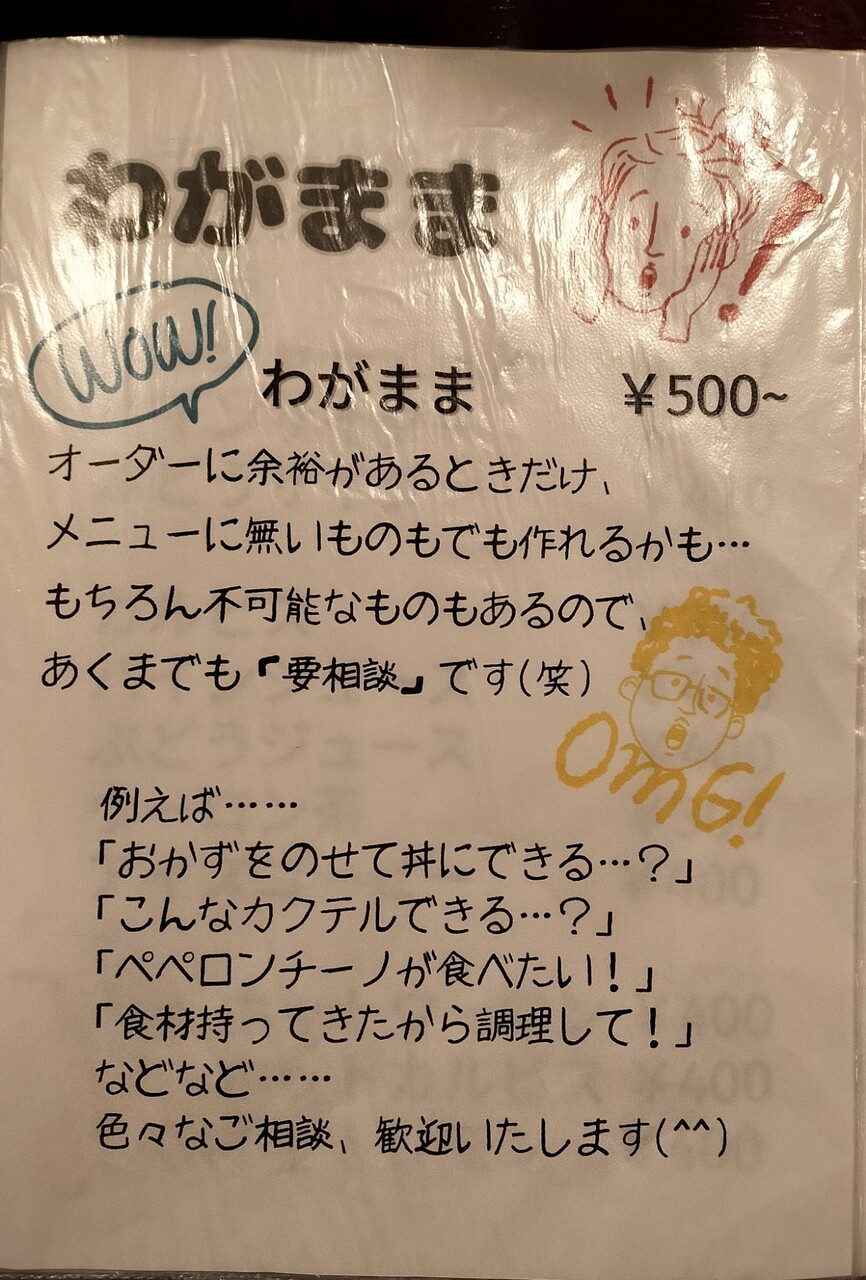 わがまま
WOW!
わがまま ¥500~
オーダーに余裕があるときだけ、
メニューに無いものもでも作れるかも…
もちろん不可能なものもあるので、
あくまでも「要相談」です(笑)
OMG!
例えば……
「おかずをのせて丼にできる…？」
「こんなカクテルできる…？」
「ペペロンチーノが食べたい！」
「食材持ってきたから調理して！」
などなど……
色々なご相談、歓迎いたします(^^)